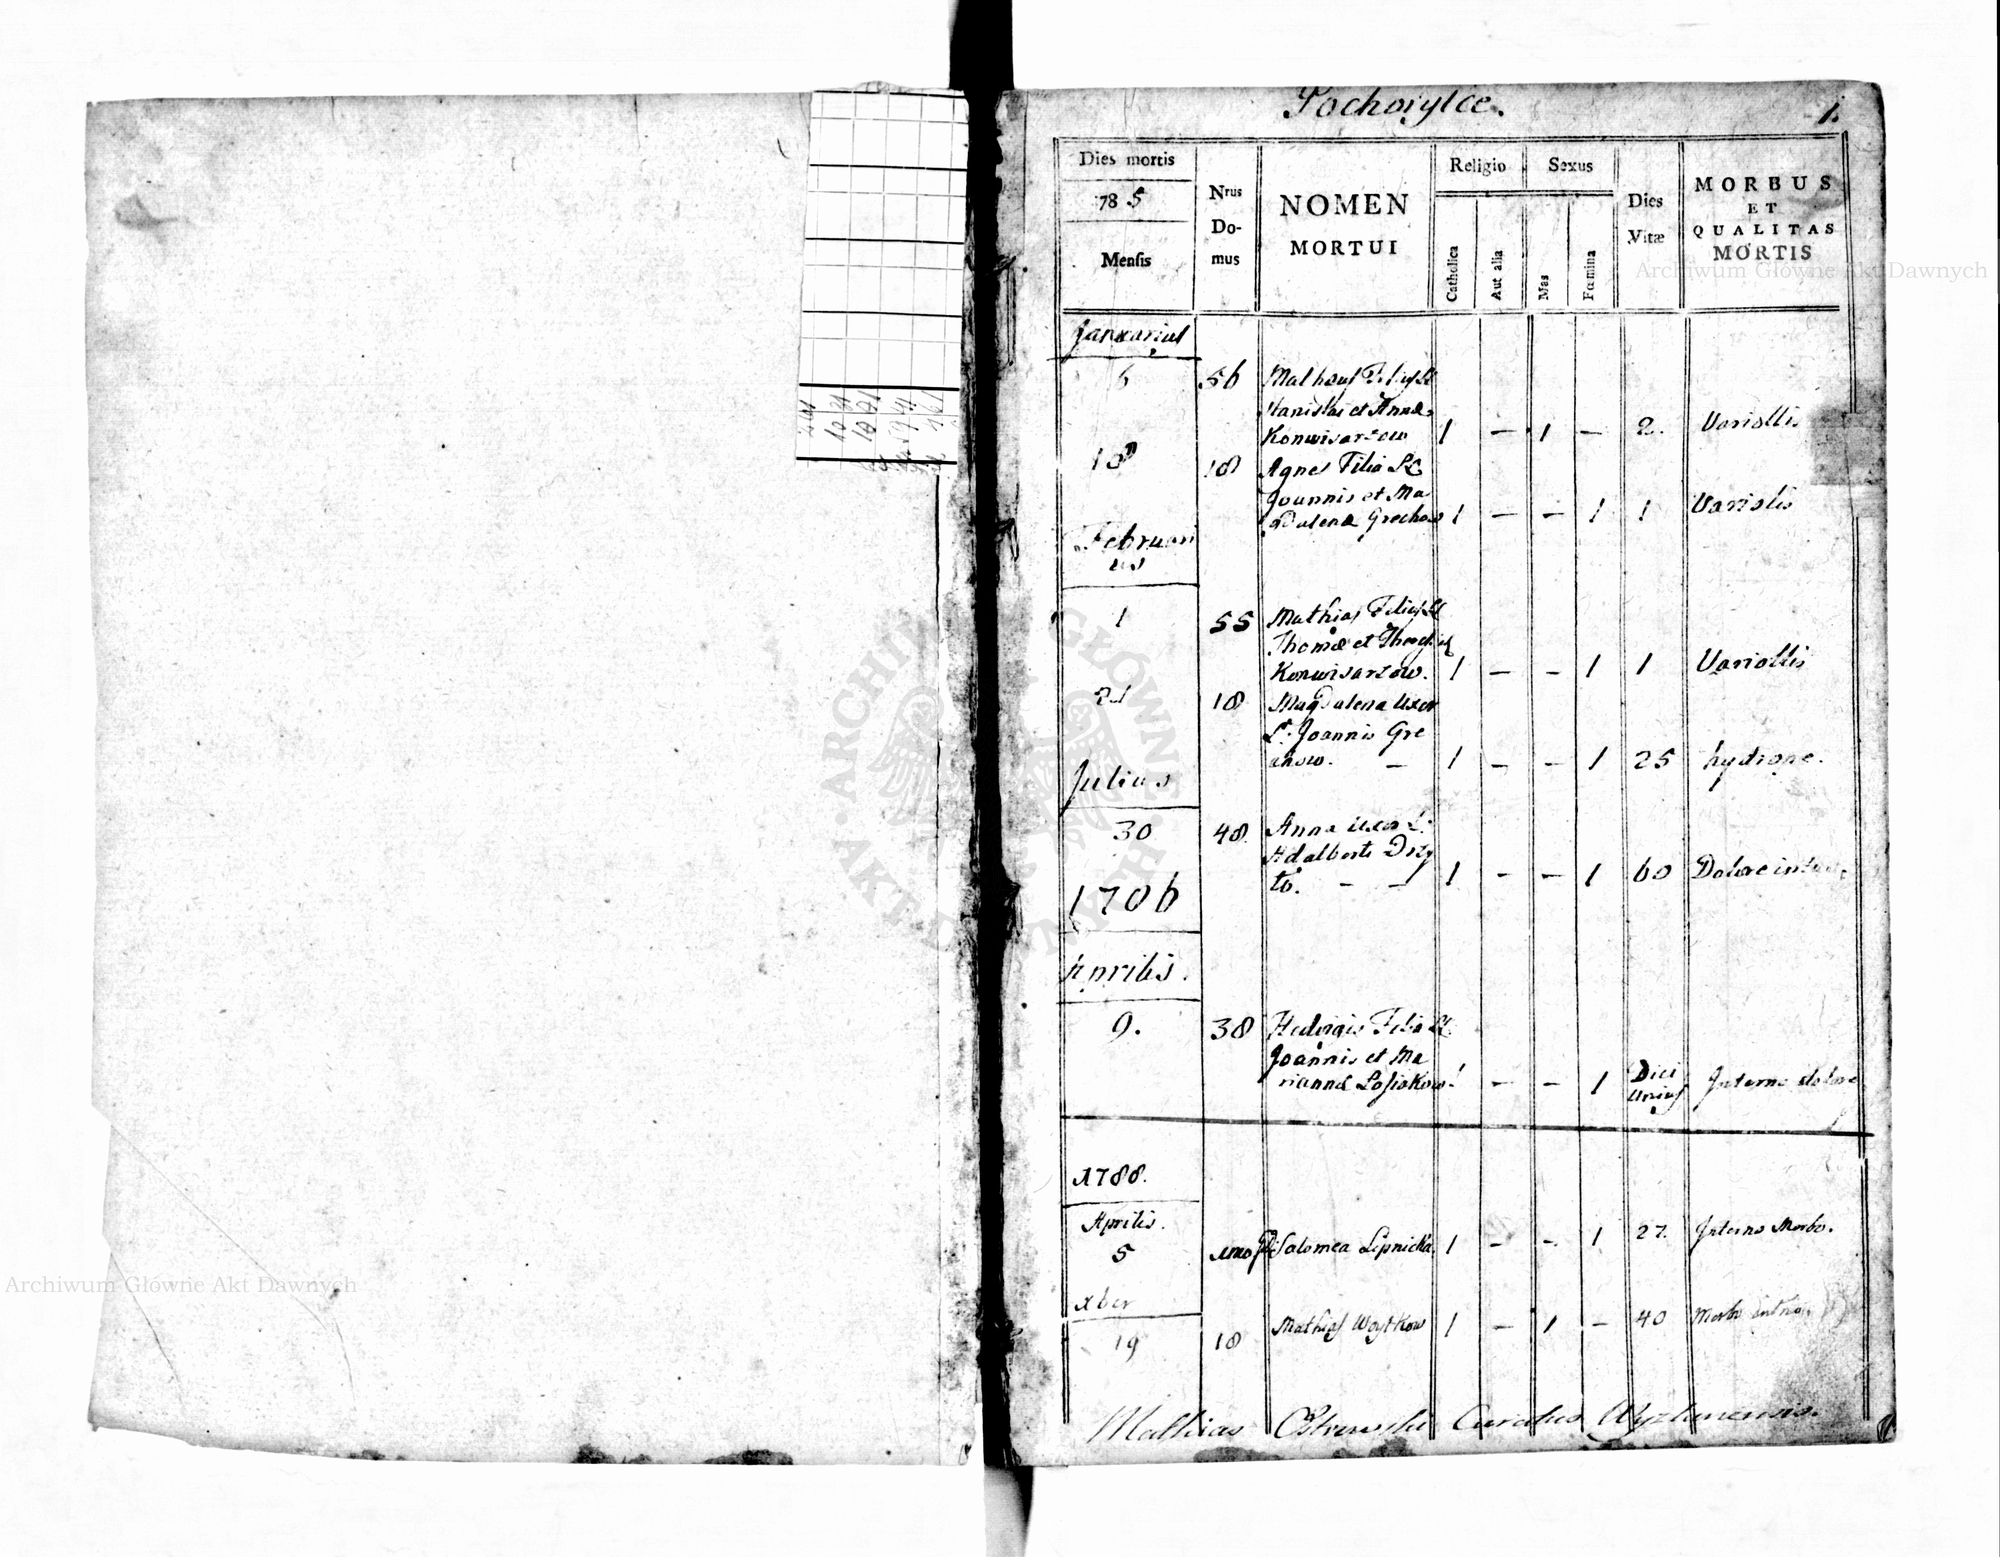 Pochorylce.
1.
Dies mortis
785
Mensis
Nrus
Do-
mus
NOMEN
MORTUI
Religio
Catholica
Aut alia
Sexus
Mas
Fœmina
Dies
Vitæ
MORBUS
ET
QUALITAS
MORTIS
Januarius
6 56 Matheus Filius
Stanislai et Annæ
Konwisarzow 1 — 1 — 2. Variollis
18 18 Agnes Filia
Joannis et Ma
gdalenæ Grechow 1 — — 1 1 Variolis
Februari
us
1 55 Mathias Filius
Thomæ et
Konwisarzow. 1 — — 1 1 Variollis
21 18 Magdalena Uxor
Joannis Gre
chow. — 1 — — 1 25 hydrope.
Julius
30 48 Anna Uxor
Adalberti Dzy
to. — — 1 — — 1 60 Dolore
1786
Aprilis.
9. 38 Hedvigis Filia
Joannis et Ma
riannæ 1 — — 1 Diei
Unius Interno dolore
1788.
Aprilis.
5 Salomea Lipnicka. 1 — — 1 27. Interno Morbo.
xber
19 18 Mathias Woytkow 1 — 1 — 40 Morbo
Mathias Ostrowski Curatus Wyzlunensis.
Archiwum Główne Akt Dawnych
Archiwum Główne Akt Dawnych